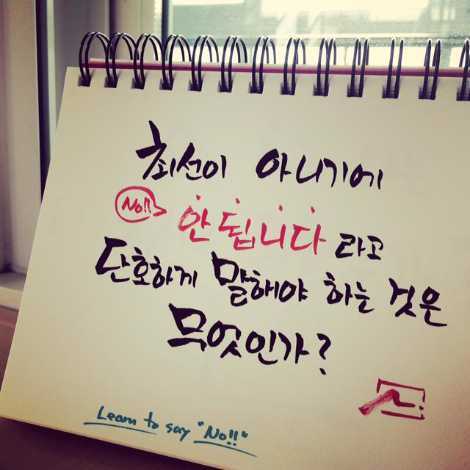 최선이 아니기에
No!! 안됩니다 라고
단호하게 말해야 하는 것은
무엇인가?
Learn to say "No!!"